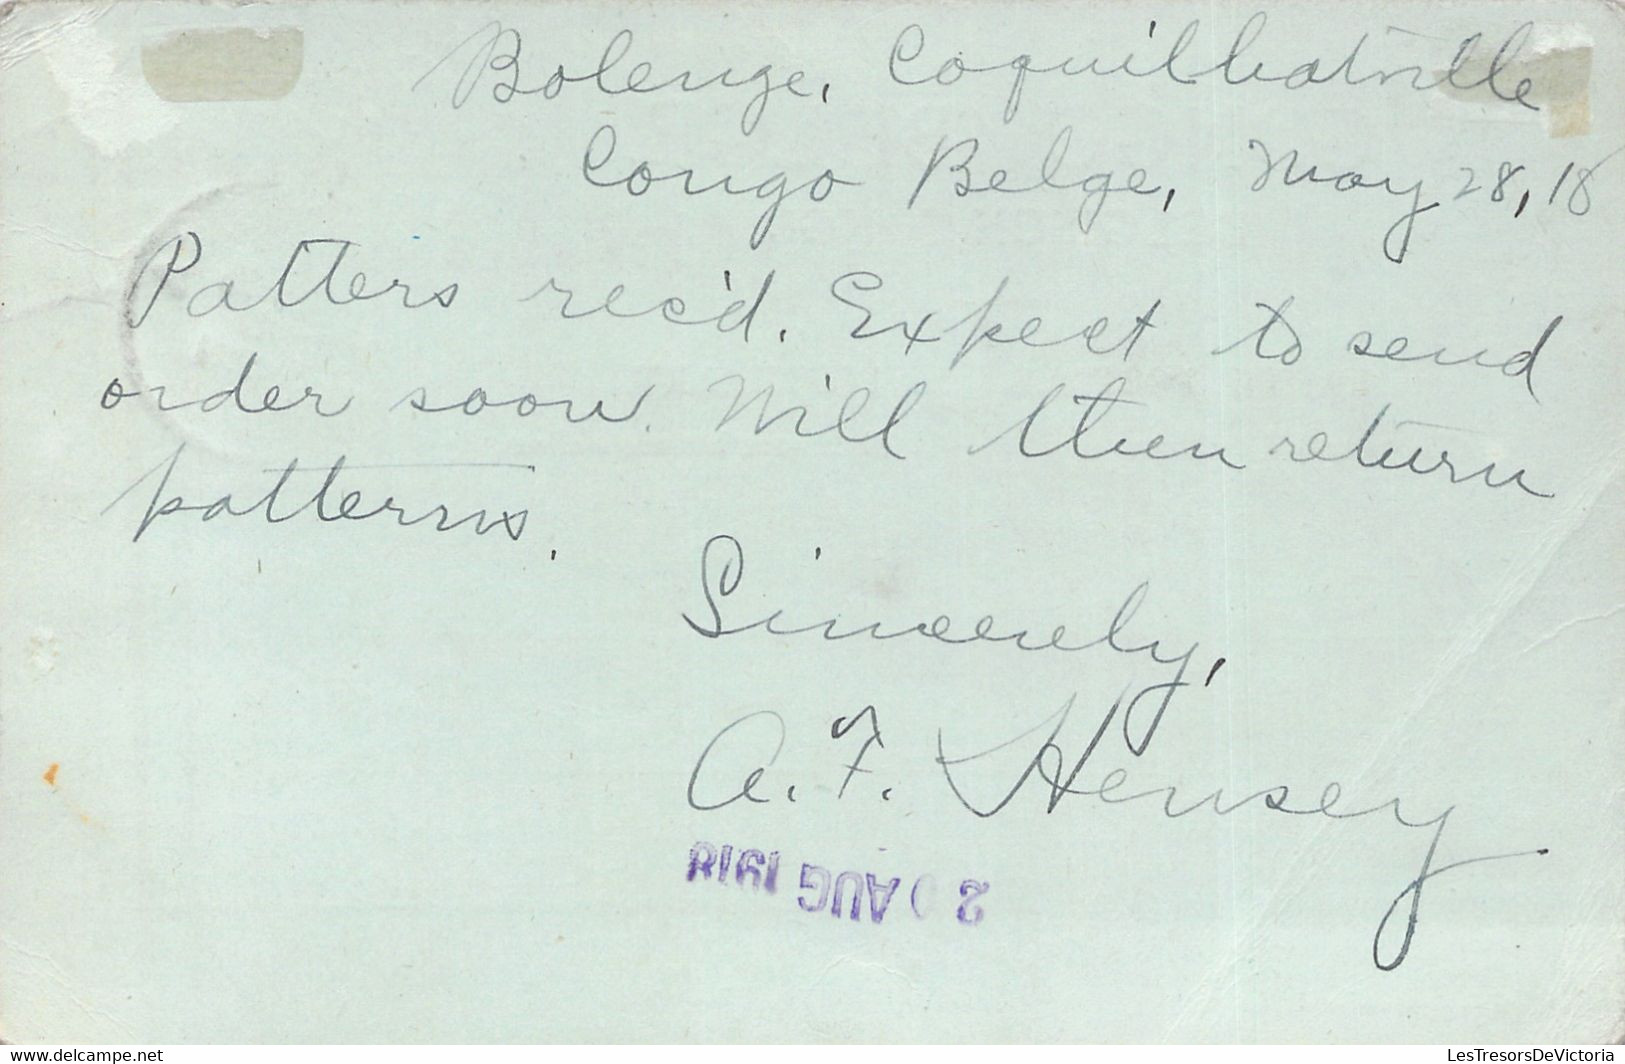 Bolenge, Coquilhatville
Congo Belge, May 28, 18
Patters rec'd. Expect to send
order soon. Will then return
patterns.
Sincerely,
A. F. Hensey
20 AUG 1918
www.delcampe.net
LesTresorsDeVictoria